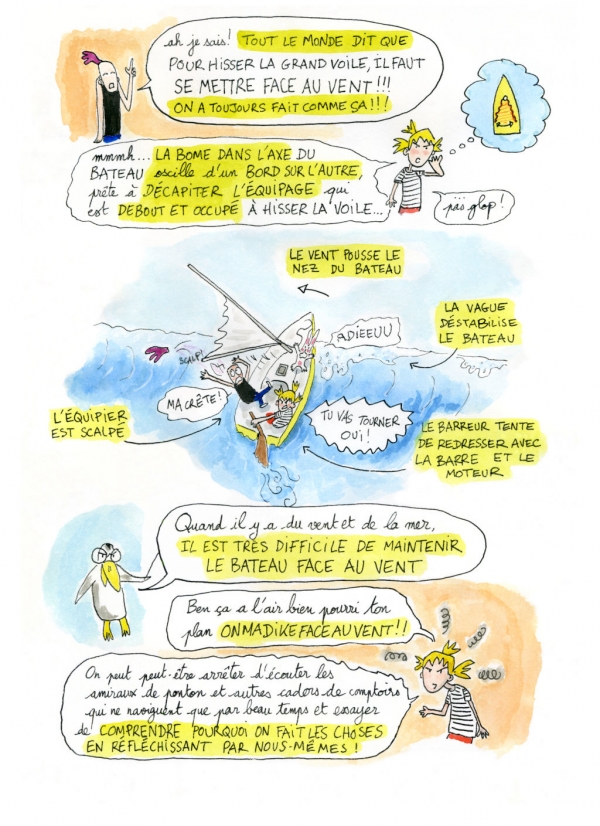 ah je sais! TOUT LE MONDE DIT QUE
POUR HISSER LA GRAND VOILE, IL FAUT
SE METTRE FACE AU VENT!!!
ON A TOUJOURS FAIT COMME ÇA!!!
mmmh... LA BOME DANS L'AXE DU
BATEAU oscille d'un BORD SUR L'AUTRE,
prête à DÉCAPITER L'ÉQUIPAGE qui
est DEBOUT ET OCCUPÉ À HISSER LA VOILE...
pas glop!
LE VENT POUSSE LE
NEZ DU BATEAU
LA VAGUE
DÉSTABILISE
LE BATEAU
ADIEEUU
SCALP!
MA CRÊTE!
TU VAS TOURNER
OUI!
L'ÉQUIPIER
EST SCALPÉ
LE BARREUR TENTE
DE REDRESSER AVEC
LA BARRE ET LE
MOTEUR
Quand il y a du vent et de la mer,
IL EST TRÈS DIFFICILE DE MAINTENIR
LE BATEAU FACE AU VENT
Ben ça a l'air bien pourri ton
plan ONMADIKEFACEAUVENT!!
On peut peut-être arrêter d'écouter les
amiraux de ponton et autres cadors de comptoirs
qui ne naviguent que par beau temps et essayer
de COMPRENDRE POURQUOI ON FAIT LES CHOSES
EN RÉFLÉCHISSANT PAR NOUS-MÊMES!